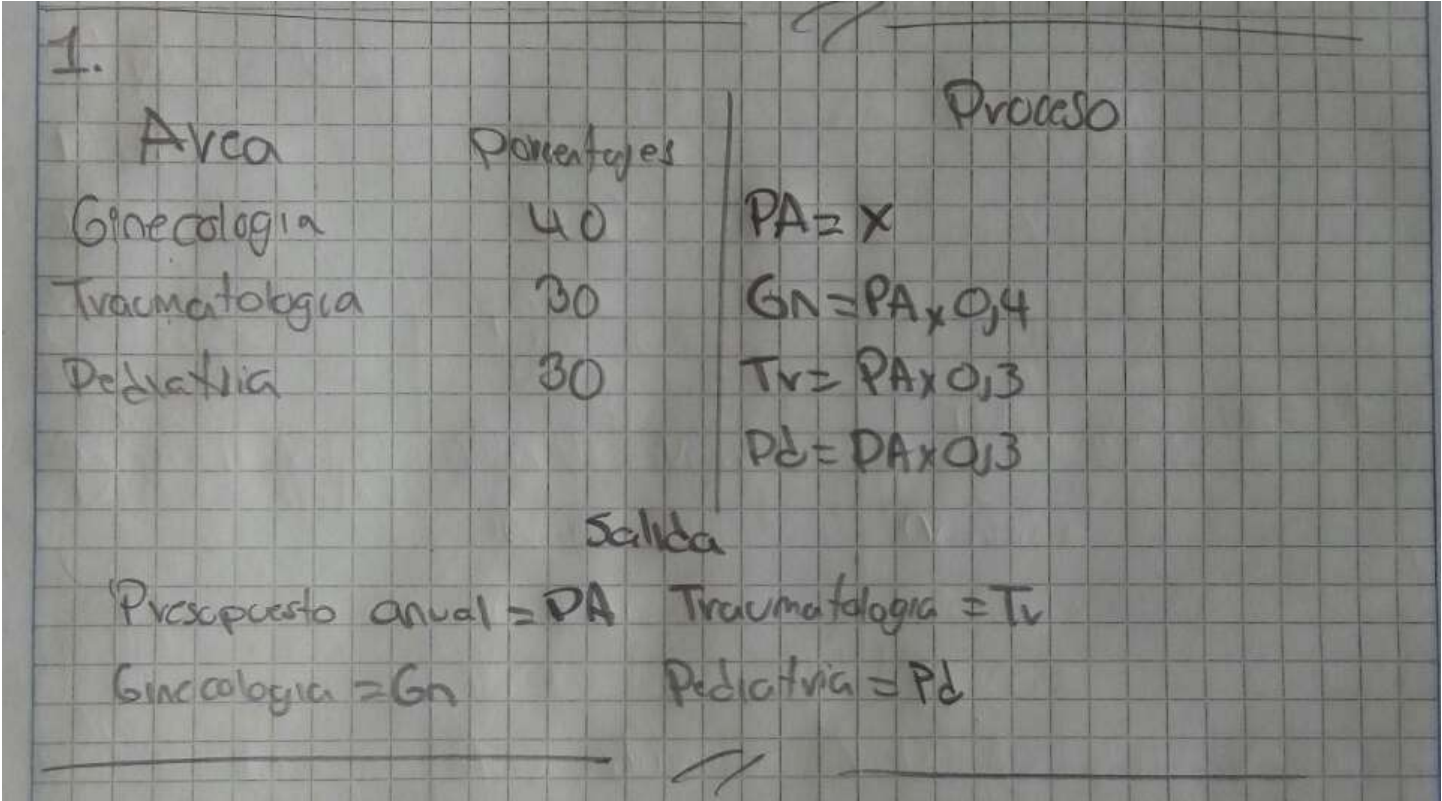 1.
Area Porcentajes
Ginecologia 40
Traumatologia 30
Pediatria 30
Proceso
PA = x
Gn = PA x 0,4
Tr = PA x 0,3
Pd = PA x 0,3
Salida
Presupuesto anual = PA Traumatologia = Tr
Ginecologia = Gn Pediatria = Pd